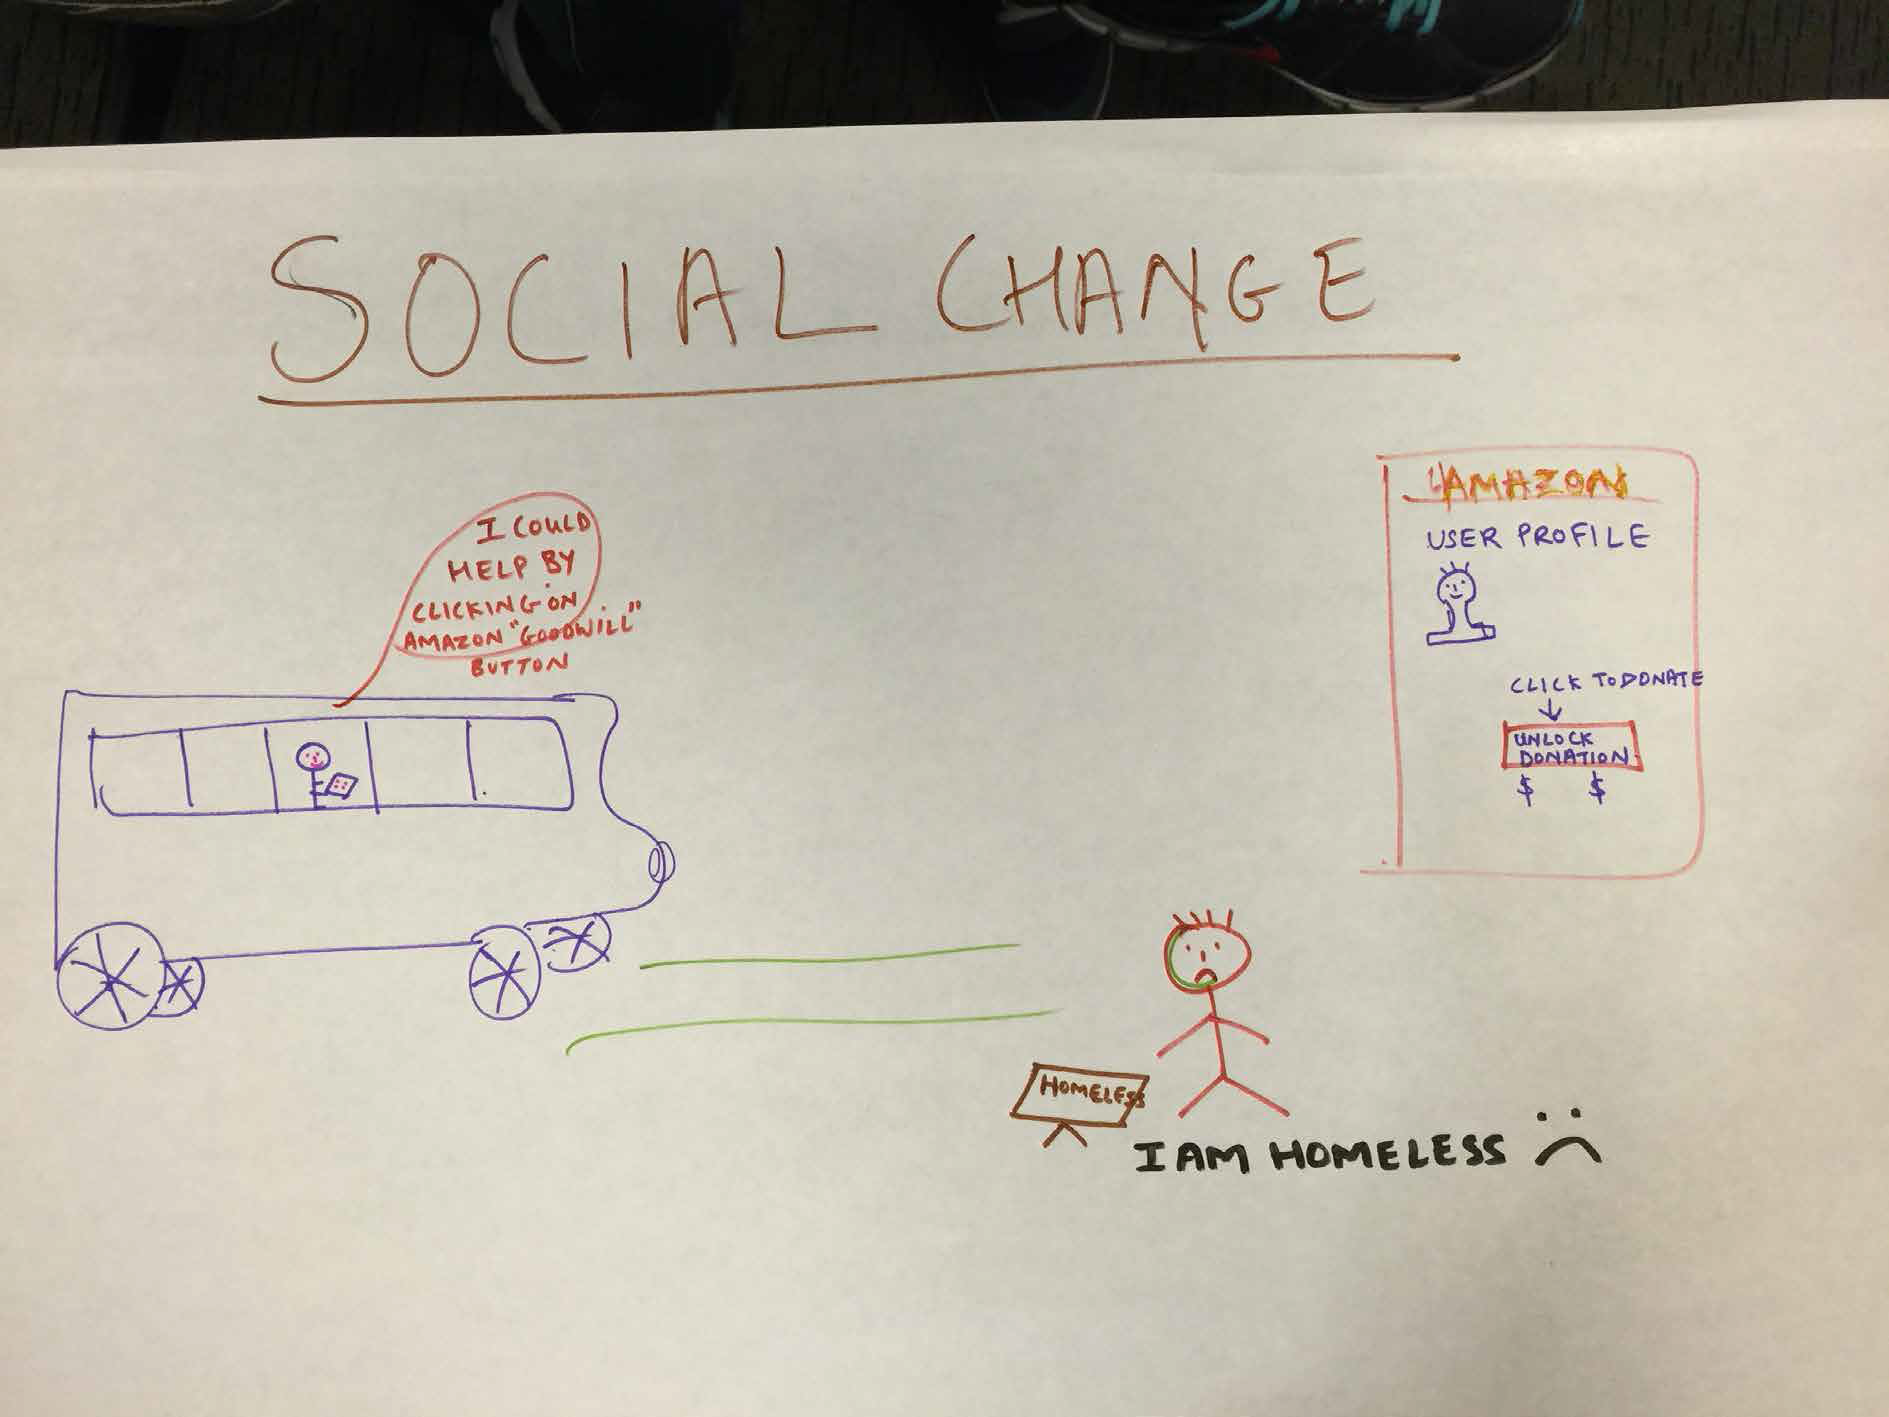 SOCIAL CHANGE
I COULD
HELP BY
CLICKING ON
AMAZON "GOODWILL"
BUTTON
AMAZON
USER PROFILE
CLICK TO DONATE
UNLOCK
DONATION
$ $
HOMELESS
I AM HOMELESS :(